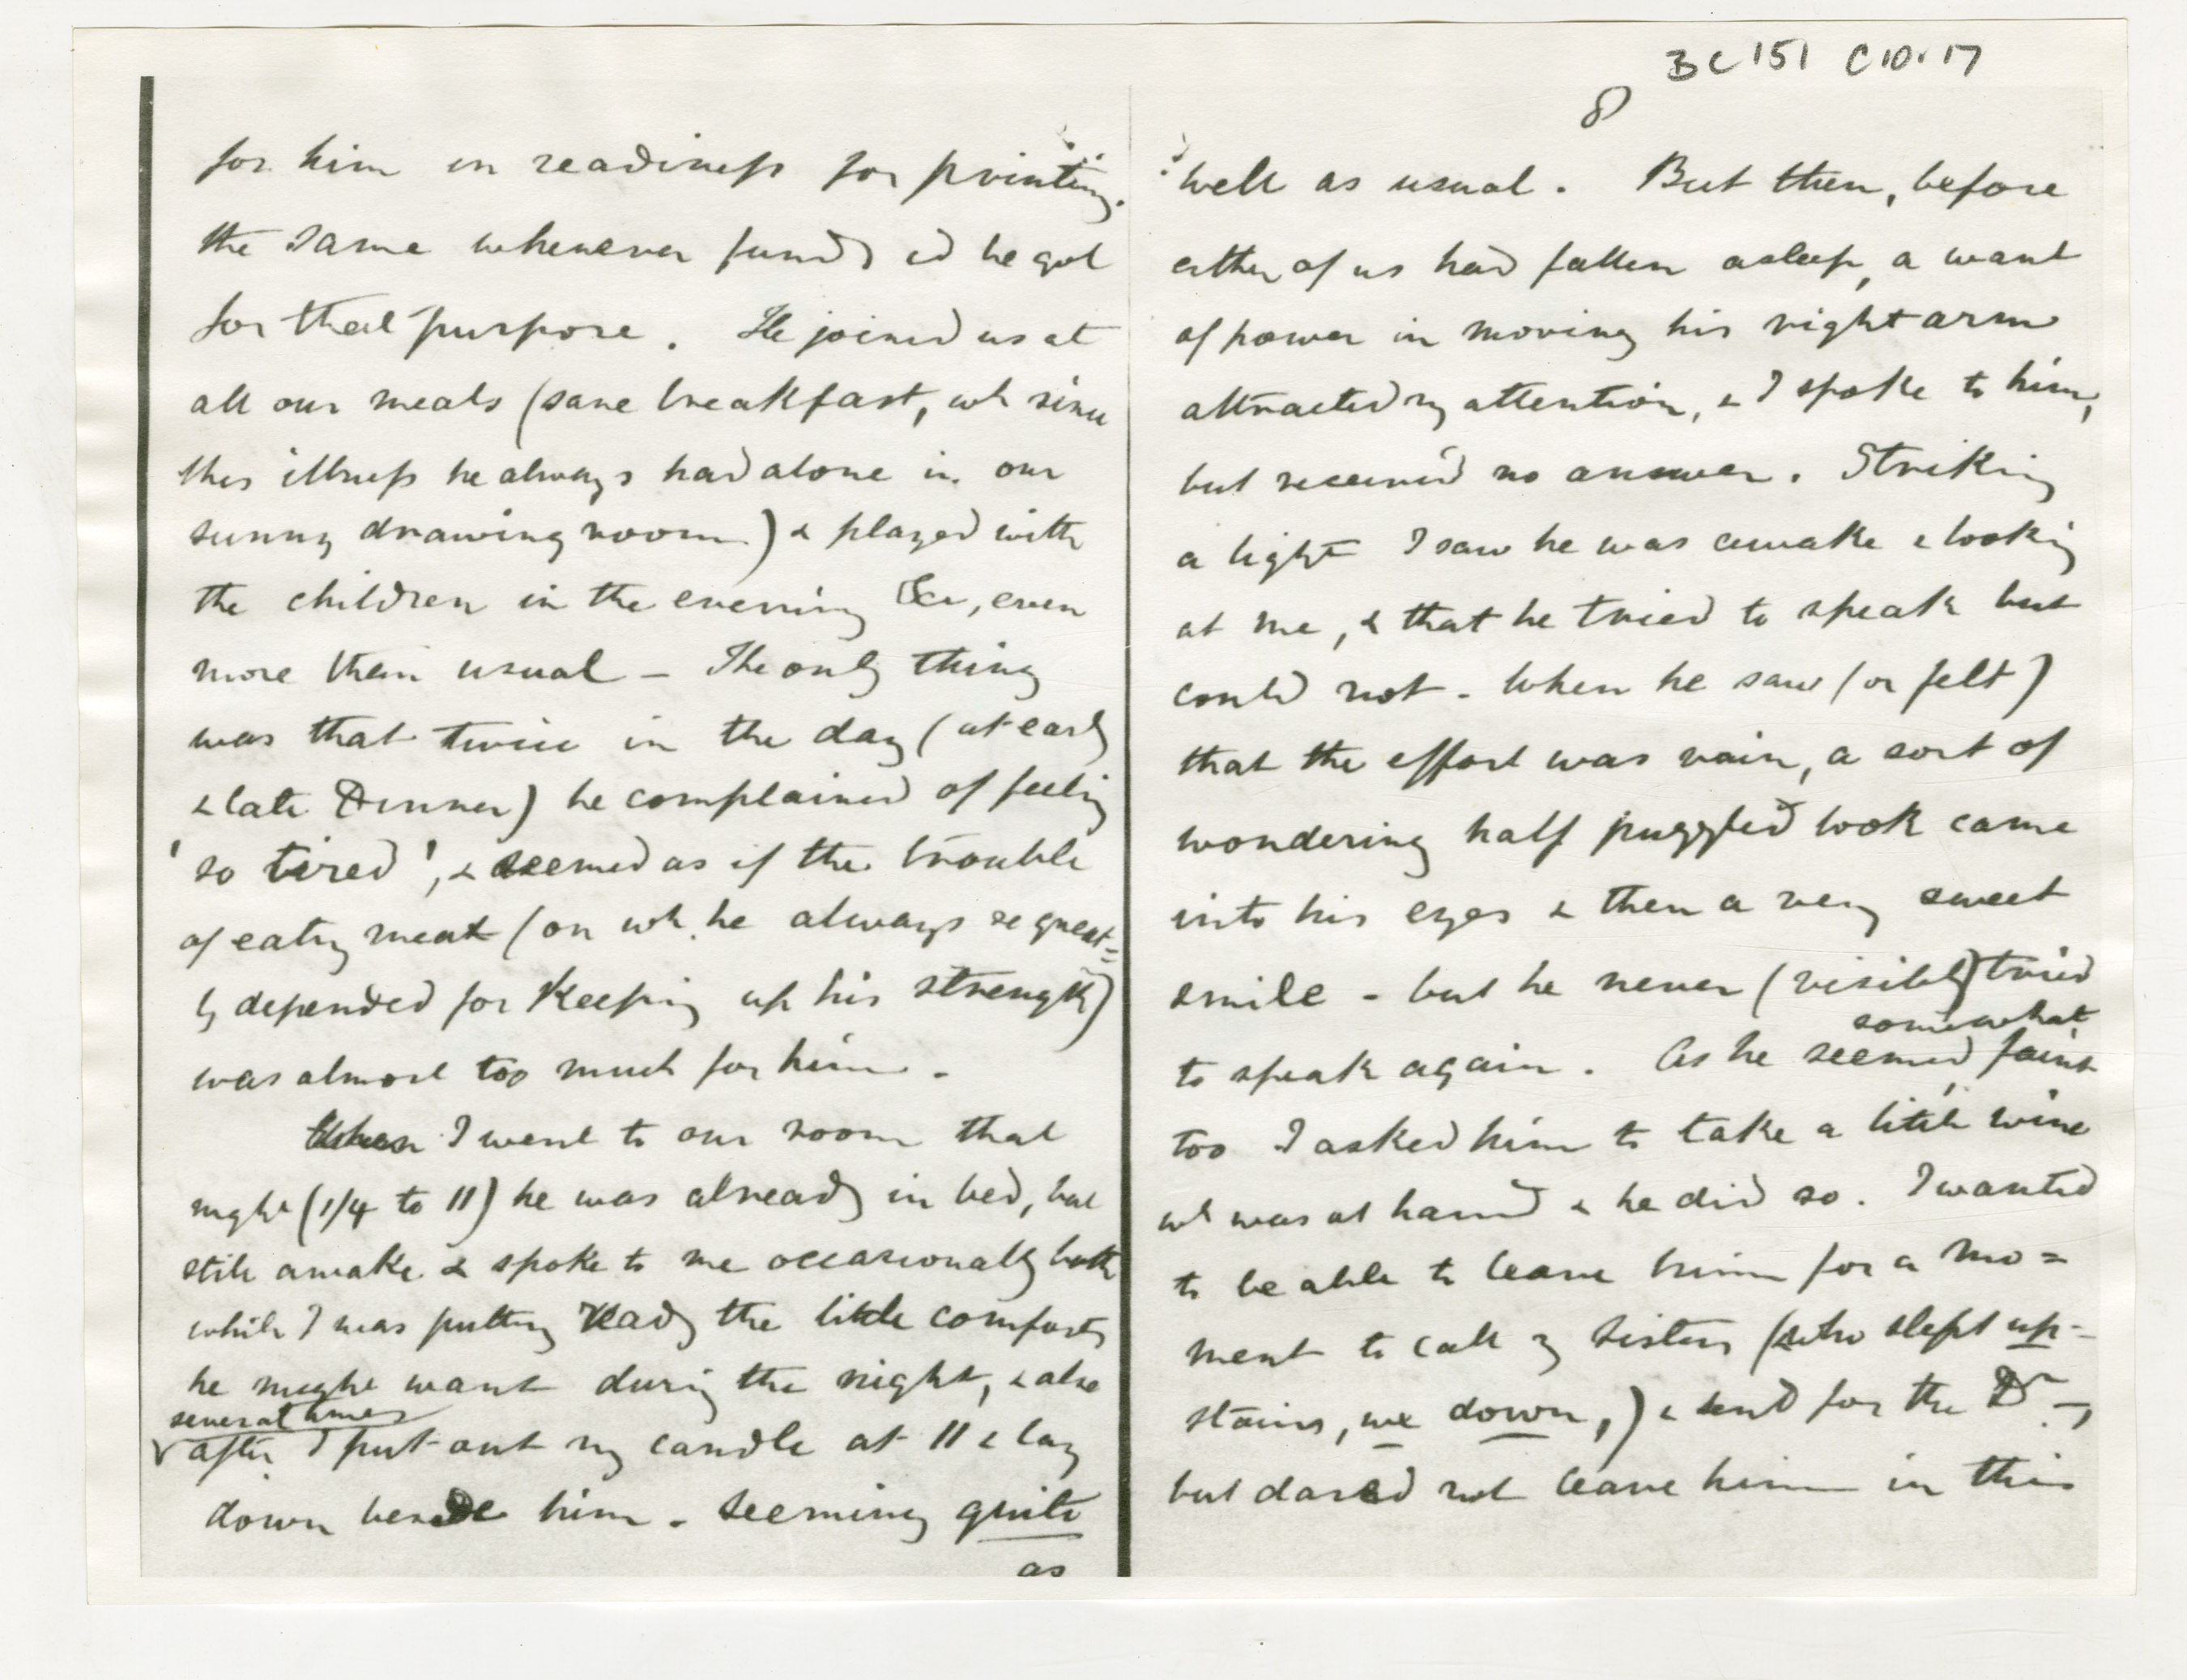 BC 151 C10.17
8
for him in readiness for printing
the same whenever funds cd be got
for that purpose. He joined us at
all our meals (save breakfast, wh since
this illness he always had alone in our
sunny drawing room) & played with
the children in the evening &c, even
more than usual – The only thing
was that twice in the day (at early
& late Dinner) he complained of feeling
'so tired', & seemed as if the trouble
of eating meat (on wh. he always so great=
ly depended for keeping up his strength)
was almost too much for him. –
When I went to our room that
night (1/4 to 11) he was already in bed, but
still awake & spoke to me occasionally both
while I was putting ready the little comforts
he might want during the night, & also
several times
after I put out my candle at 11 & lay
down beside him – seeming quite
as
well as usual. But then, before
either of us had fallen asleep, a want
of power in moving his right arm
attracted my attention, & I spoke to him,
but received no answer. Striking
a light I saw he was awake & looking
at me, & that he tried to speak but
could not – When he saw (or felt)
that the effort was vain, a sort of
wondering half puzzled look came
into his eyes & then a very sweet
smile – but he never (visibly) tried
somewhat
to speak again. As he seemed faint
too I asked him to take a little wine
wh was at hand & he did so. I wanted
to be able to leave him for a mo=
ment to call my sisters (who slept up-
stairs, we down,) & send for the Dr –,
but dared not leave him in this